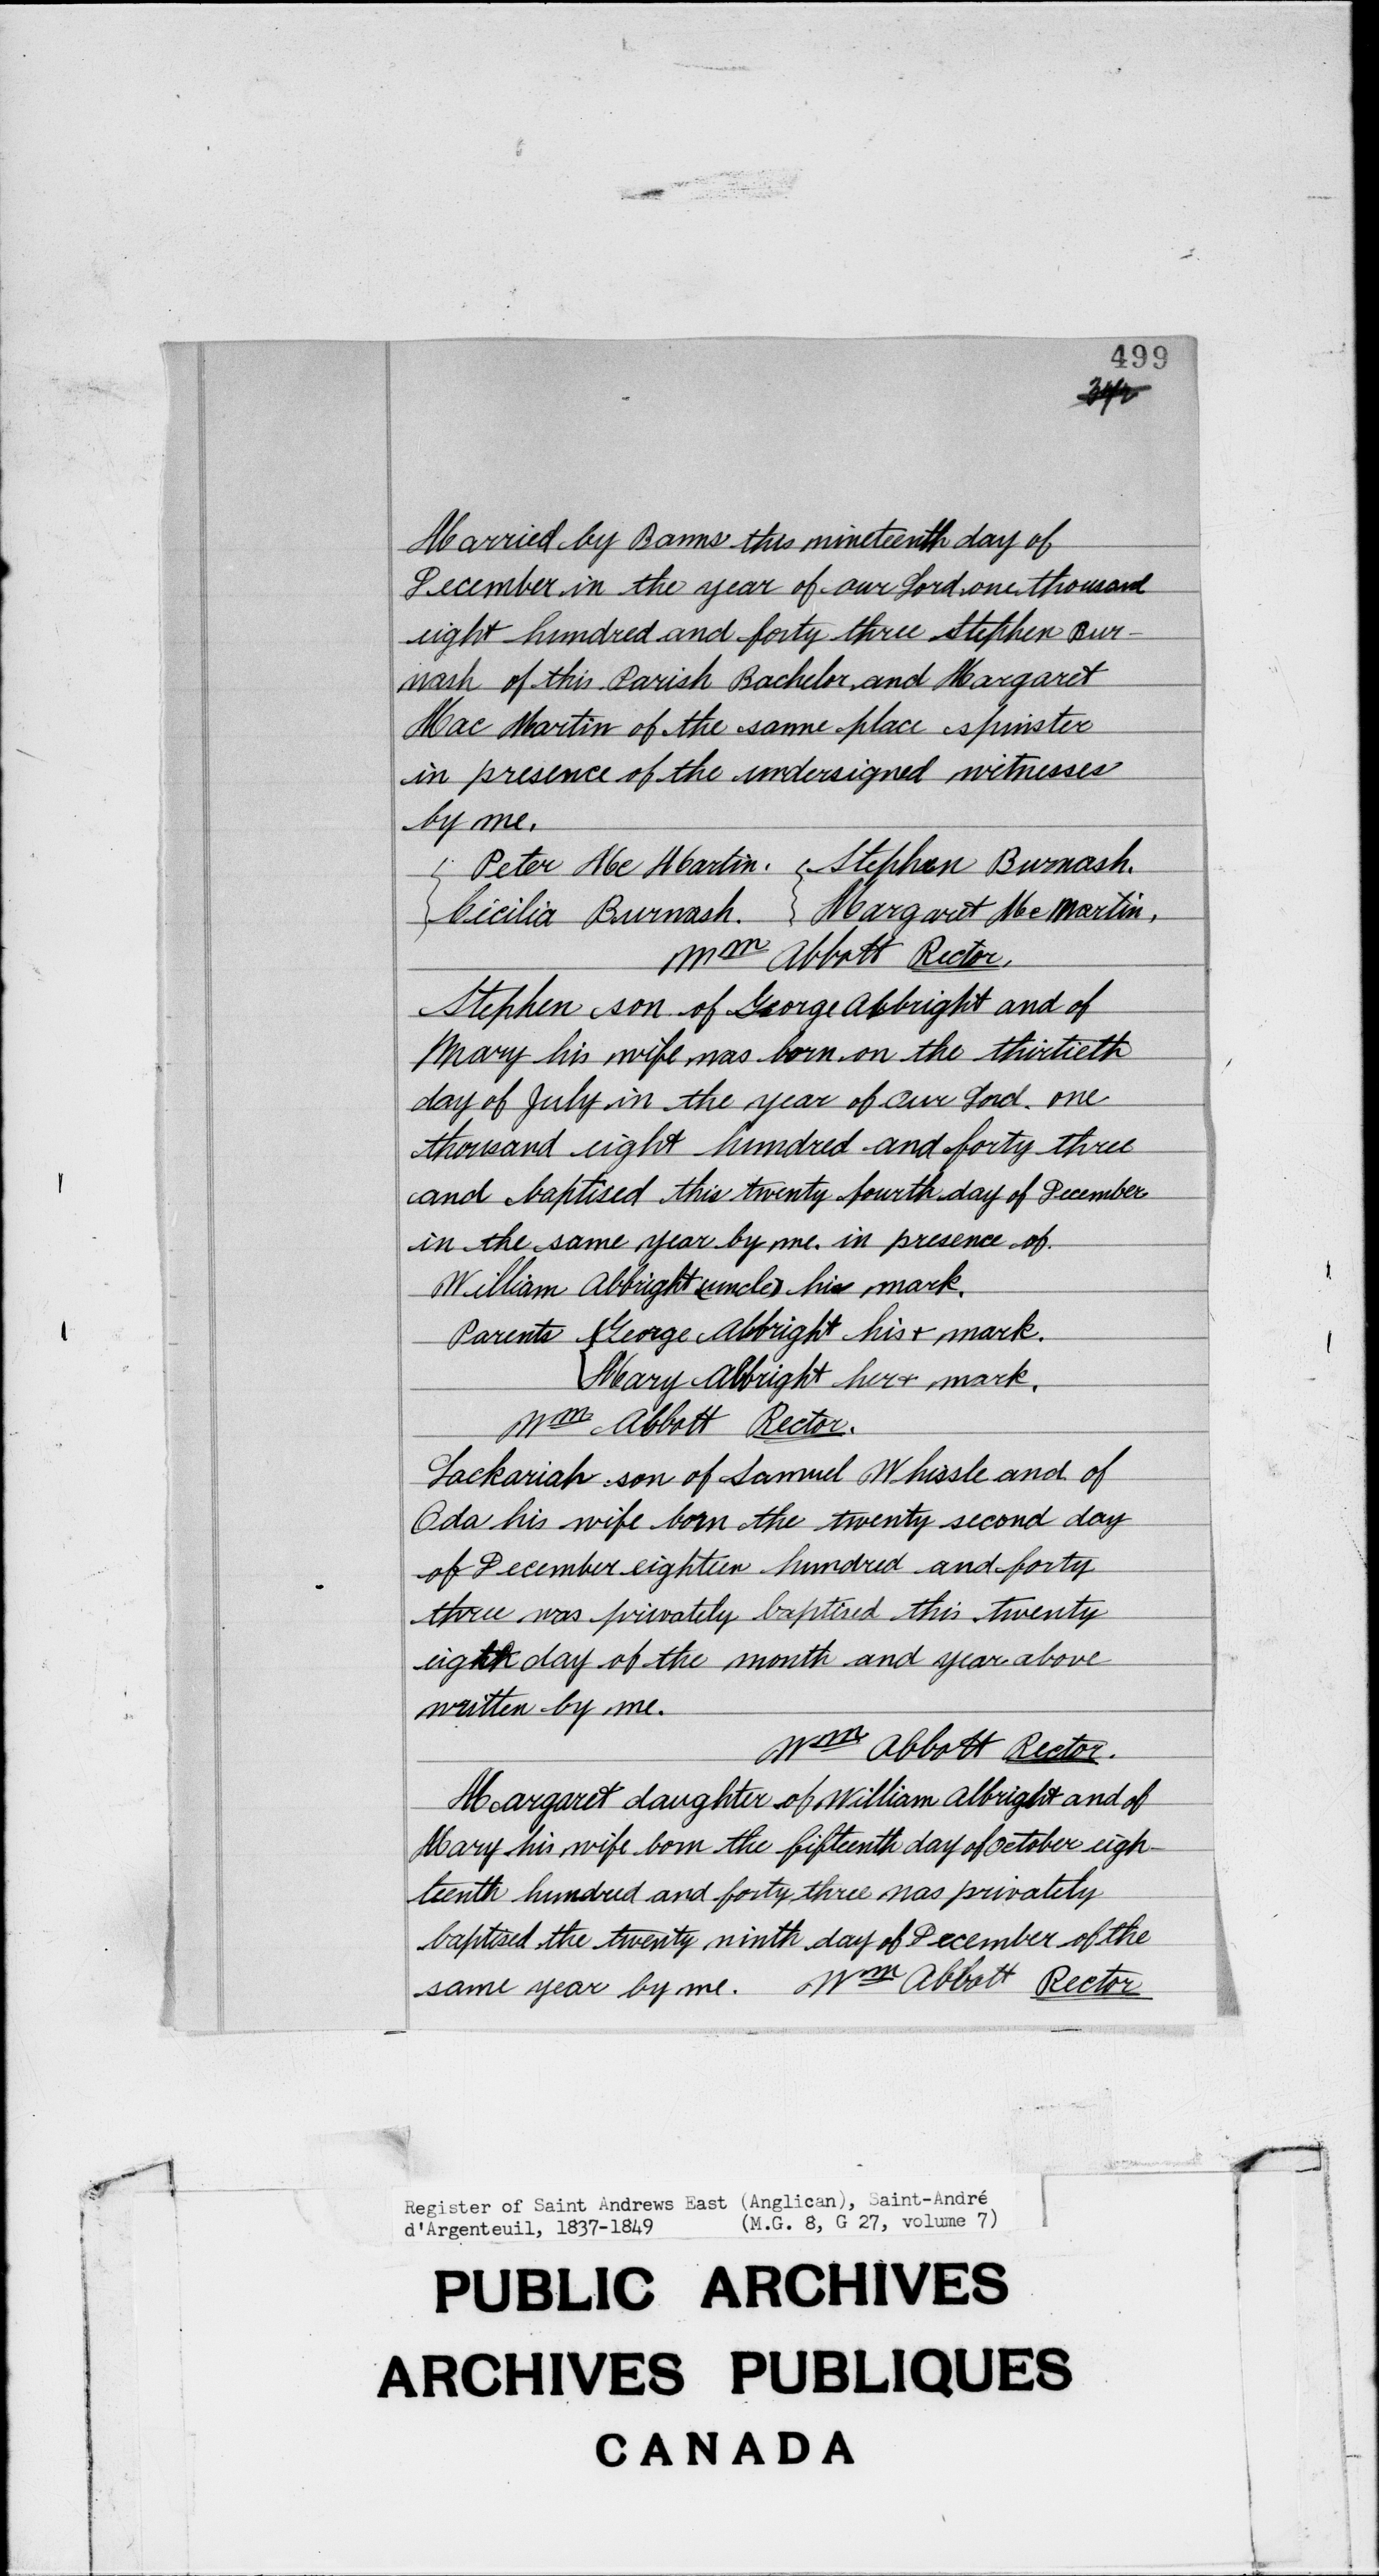 499
342
Married by Banns this nineteenth day of
December in the year of our Lord one thousand
eight hundred and forty three Stephen Bur-
nash of this Parish Bachelor and Margaret
Mac Martin of the same place spinster
in presence of the undersigned witnesses
by me.
{ Peter Mc Martin. { Stephen Burnash.
{ Cicilia Burnash. { Margaret Mc Martin.
Wm Abbott Rector.
Stephen son of George Abbright and of
Mary his wife was born on the thirtieth
day of July in the year of Our Lord. one
thousand eight hundred and forty three
and baptised this twenty fourth day of December
in the same year by me. in presence of.
William Abbright (uncle) his mark.
Parents { George Abbright his + mark.
{ Mary Abbright her + mark.
Wm Abbott Rector.
Zackariah son of Samuel Whissle and of
Oda his wife born the twenty second day
of December eighteen hundred and forty
three was privately baptised this twenty
eighth day of the month and year above
written by me.
Wm Abbott Rector.
Margaret daughter of William Albright and of
Mary his wife born the fifteenth day of October eigh-
teenth hundred and forty three was privately
baptised the twenty ninth day of December of the
same year by me. Wm Abbott Rector
Register of Saint Andrews East (Anglican), Saint-André
d'Argenteuil, 1837-1849 (M.G. 8, G 27, volume 7)
PUBLIC ARCHIVES
ARCHIVES PUBLIQUES
CANADA